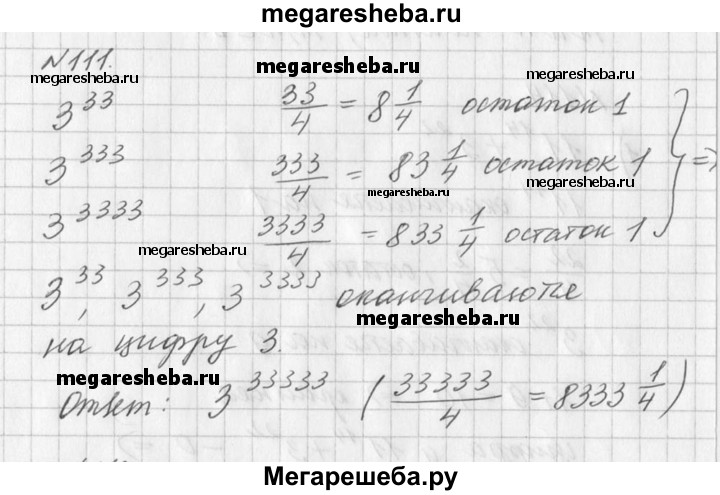 megaresheba.ru
№111.
megaresheba.ru megaresheba.ru
3^33 33/4 = 8 1/4 остаток 1
3^333 333/4 = 83 1/4 остаток 1 =>
megaresheba.ru
3^3333 3333/4 = 833 1/4 остаток 1
megaresheba.ru
3^33, 3^333, 3^3333 оканчиваются
megaresheba.ru
на цифру 3.
megaresheba.ru
Ответ: 3^33333 (33333/4 = 8333 1/4)
Мегарешеба.ру